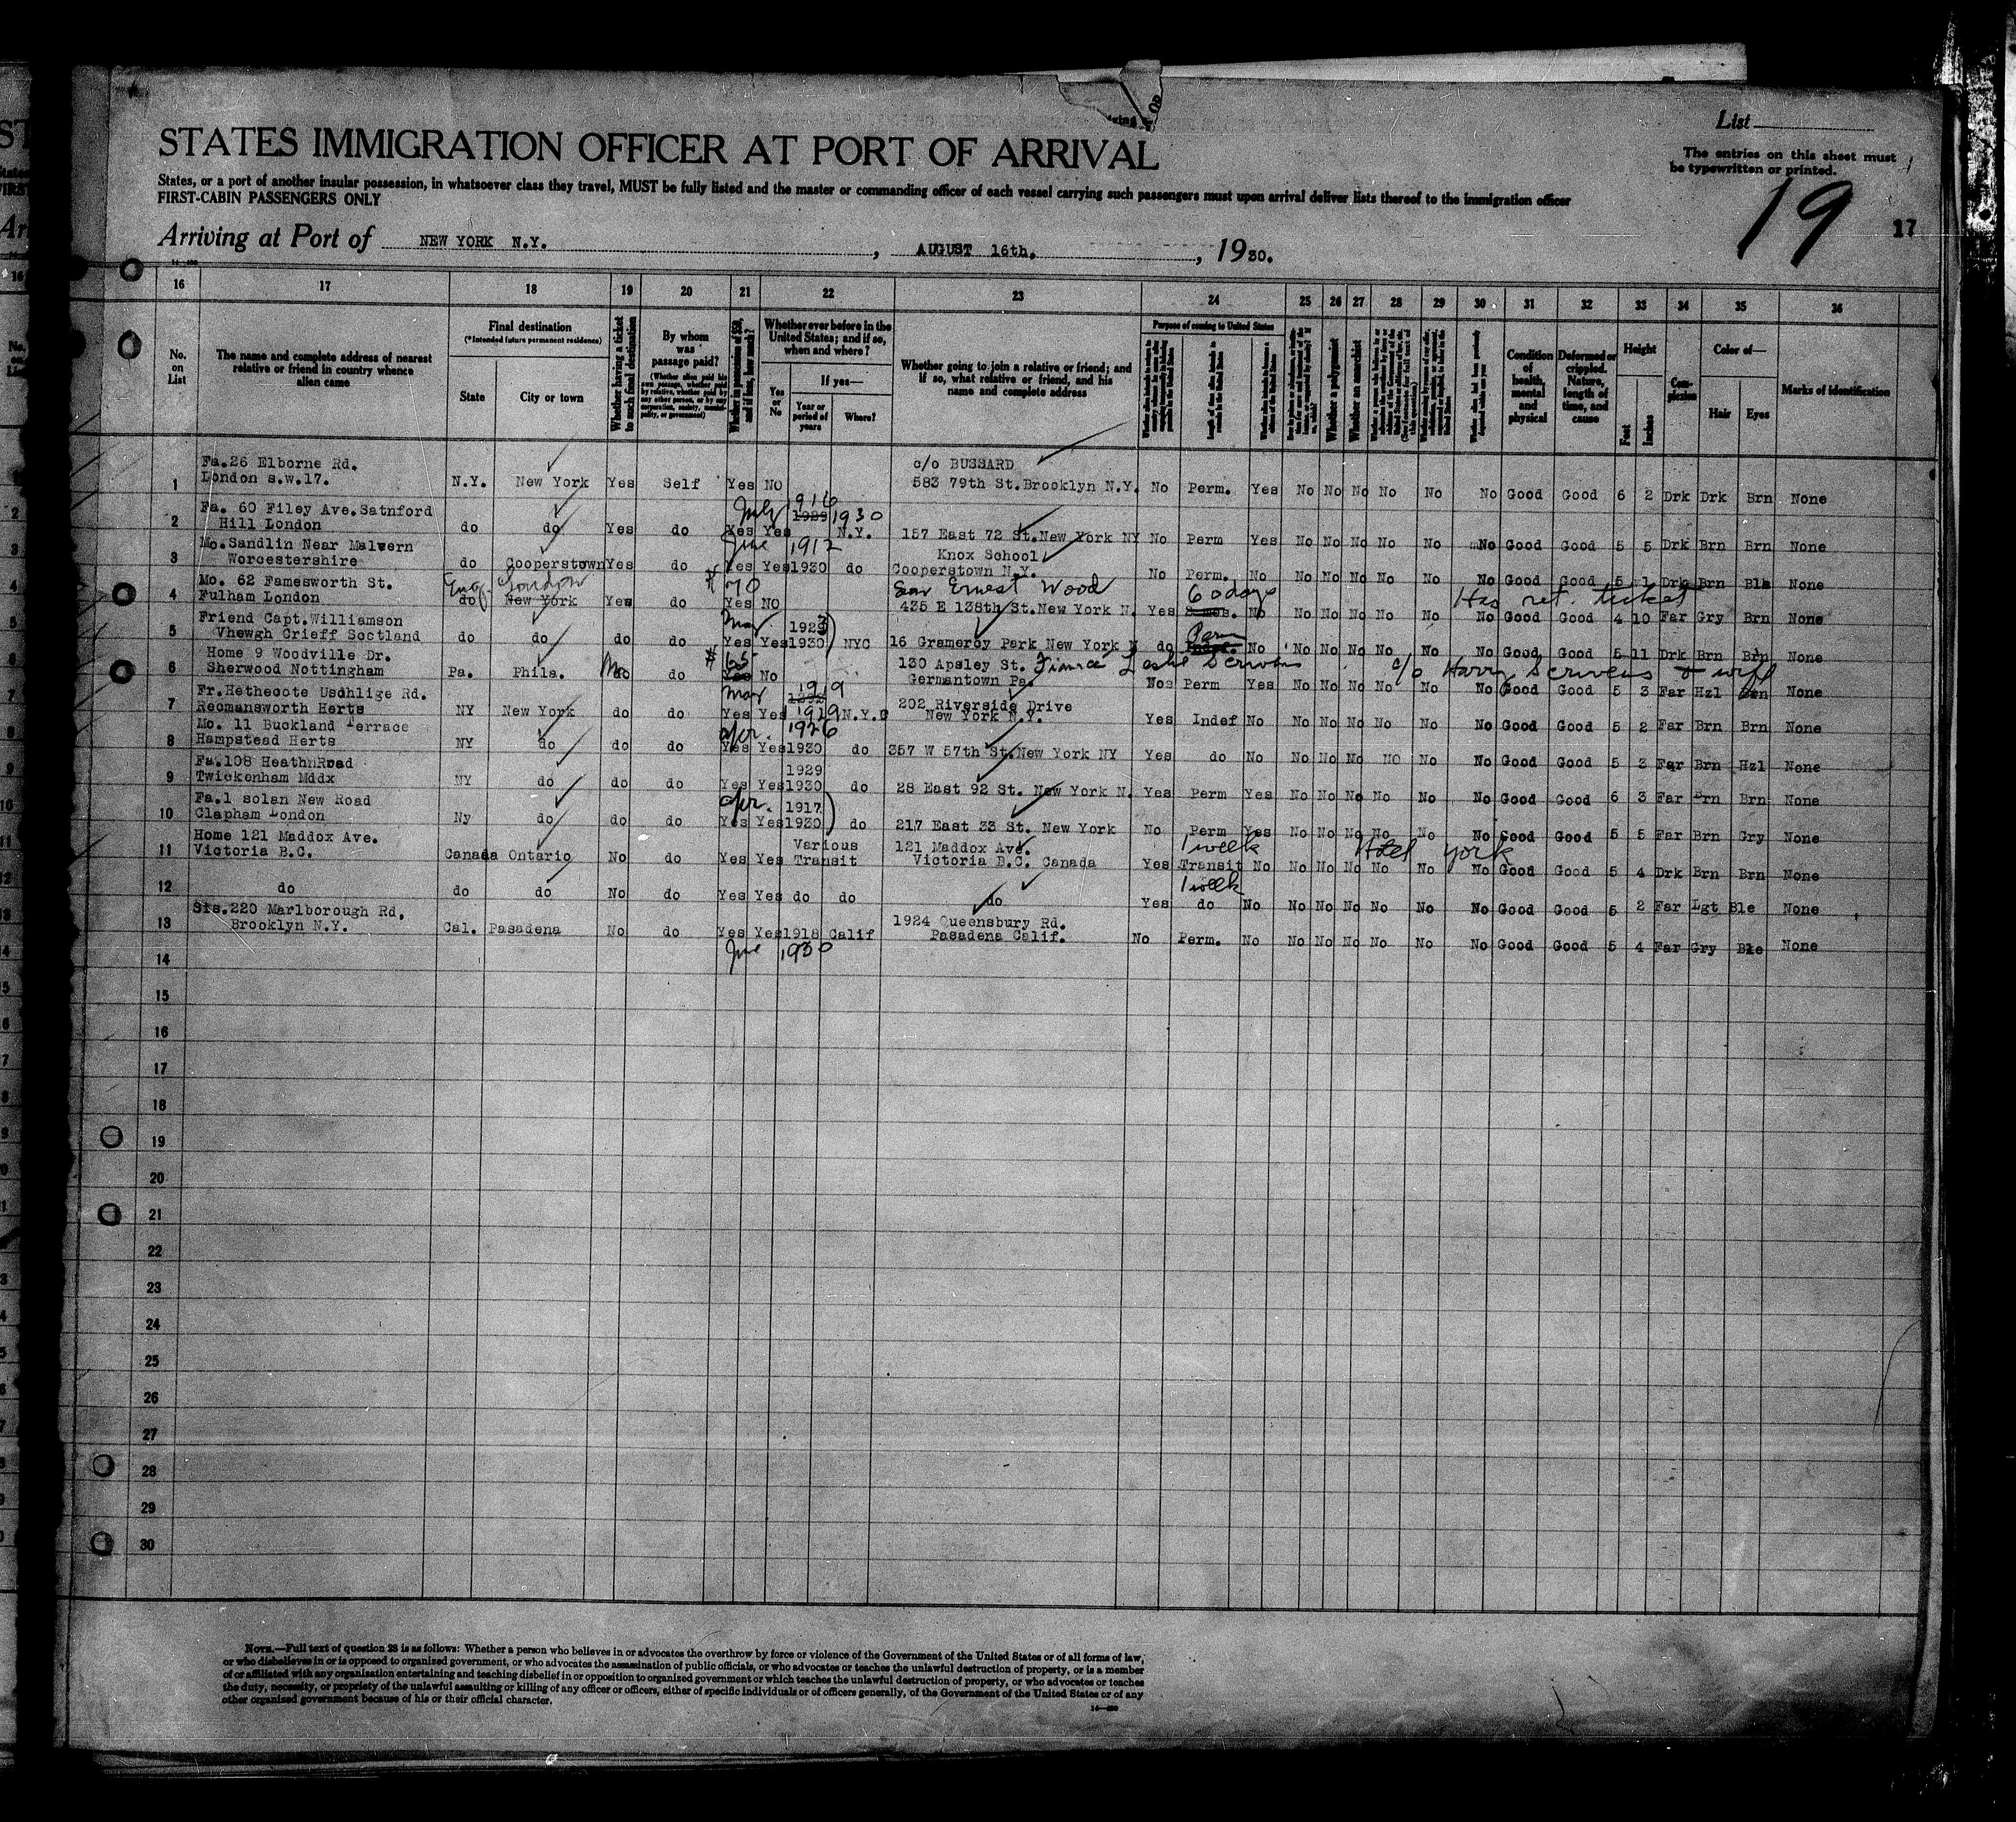 List
The entries on this sheet must
be typewritten or printed.
STATES IMMIGRATION OFFICER AT PORT OF ARRIVAL
States, or a port of another insular possession, in whatsoever class they travel, MUST be fully listed and the master or commanding officer of each vessel carrying such passengers must upon arrival deliver lists thereof to the immigration officer
FIRST-CABIN PASSENGERS ONLY
19 17
Arriving at Port of NEW YORK N.Y. , AUGUST 16th, , 1930.
16 17 18 19 20 21 22 23 24 25 26 27 28 29 30 31 32 33 34 35 36
No. on List
The name and complete address of nearest relative or friend in country whence alien came
Final destination
(*Intended future permanent residence)
State
City or town
Whether having a ticket to such final destination
By whom was passage paid?
Whether in possession of $50, and if less, how much?
Whether ever before in the United States; and if so, when and where?
Yes or No
If yes—
Year or period of years
Where?
Whether going to join a relative or friend; and if so, what relative or friend, and his name and complete address
Purpose of coming to United States
Whether a polygamist
Whether an anarchist
Condition of health, mental and physical
Deformed or crippled. Nature, length of time, and cause
Height
Feet
Inches
Complexion
Color of—
Hair
Eyes
Marks of identification
Fa.26 Elborne Rd. c/o BUSSARD
1 London s.w.17. N.Y. New York Yes Self Yes No 583 79th St.Brooklyn N.Y. No Perm. Yes No No No No No No Good Good 6 2 Drk Drk Brn None
Fa. 60 Filey Ave.Satnford July 1916
2 Hill London do do Yes do Yes Yes 1929 1930 N.Y. 157 East 72 St.New York NY No Perm Yes No No No No No No Good Good 5 5 Drk Brn Brn None
Mo.Sandlin Near Malvern June 1912 Knox School
3 Worcestershire do Cooperstown Yes do Yes Yes 1930 do Cooperstown N.Y. No Perm. No No No No No No No Good Good 5 1 Drk Brn Ble None
Mo. 62 Famesworth St. Eng. London $70 Ernest Wood 60 days Has ret. ticket
4 Fulham London do New York Yes do Yes NO 435 E 138th St.New York N. Yes No No No No No No No Good Good 4 10 Far Gry Brn None
Friend Capt.Williamson May 1923 Perm
5 Vhewgh Crieff Scotland do do do do Yes Yes 1930 NYC 16 Gramercy Park New York N do No No No No No No No Good Good 5 11 Drk Brn Brn None
Home 9 Woodville Dr. $65 130 Apsley St. Fiance Leslie Scrivens c/o Harry Scrivens & wife
6 Sherwood Nottingham Pa. Phila. do do Yes No Germantown Pa. No Perm Yes No No No No No No Good Good 5 3 Far Hzl Brn None
Fr.Hethecote Usdhlige Rd. May 1919 202 Riverside Drive
7 Recmansworth Herts NY New York do do Yes Yes 1929 N.Y.C New York N.Y. Yes Indef No No No No No No No Good Good 5 2 Far Brn Brn None
Mo. 11 Buckland Terrace Apr. 1926
8 Hampstead Herts NY do do do Yes Yes 1930 do 357 W 57th St.New York NY Yes do No No No No NO No No Good Good 5 3 Far Brn Hzl None
Fa.108 Heath Road 1929
9 Twickenham Mddx NY do do do Yes Yes 1930 do 28 East 92 St. New York N. Yes Perm Yes No No No No No No Good Good 6 3 Far Brn Brn None
Fa.1 solan New Road Apr. 1917
10 Clapham London Ny do do do Yes Yes 1930 do 217 East 33 St. New York No Perm Yes No No No No No No Good Good 5 5 Far Brn Gry None
Home 121 Maddox Ave. Various 121 Maddox Ave. 1 week Hotel York
11 Victoria B.C. Canada Ontario No do Yes Yes Transit Victoria B.C. Canada Yes Transit No No No No No No No Good Good 5 4 Drk Brn Brn None
1 week
12 do do do No do Yes Yes do do do Yes do No No No No No No No Good Good 5 2 Far Lgt Ble None
Sis.220 Marlborough Rd, 1924 Queensbury Rd.
13 Brooklyn N.Y. Cal. Pasadena No do Yes Yes 1918 Calif Pasadena Calif. No Perm. No No No No No No No Good Good 5 4 Far Gry Ble None
14 June 1930
15
16
17
18
19
20
21
22
23
24
25
26
27
28
29
30
NOTE.—Full text of question 28 is as follows: Whether a person who believes in or advocates the overthrow by force or violence of the Government of the United States or of all forms of law,
or who disbelieves in or is opposed to organized government, or who advocates the assassination of public officials, or who advocates or teaches the unlawful destruction of property, or is a member
of or affiliated with any organization entertaining and teaching disbelief in or opposition to organized government or which teaches the unlawful destruction of property, or who advocates or teaches
the duty, necessity, or propriety of the unlawful assaulting or killing of any officer or officers, either of specific individuals or of officers generally, of the Government of the United States or of any
other organized government because of his or their official character.